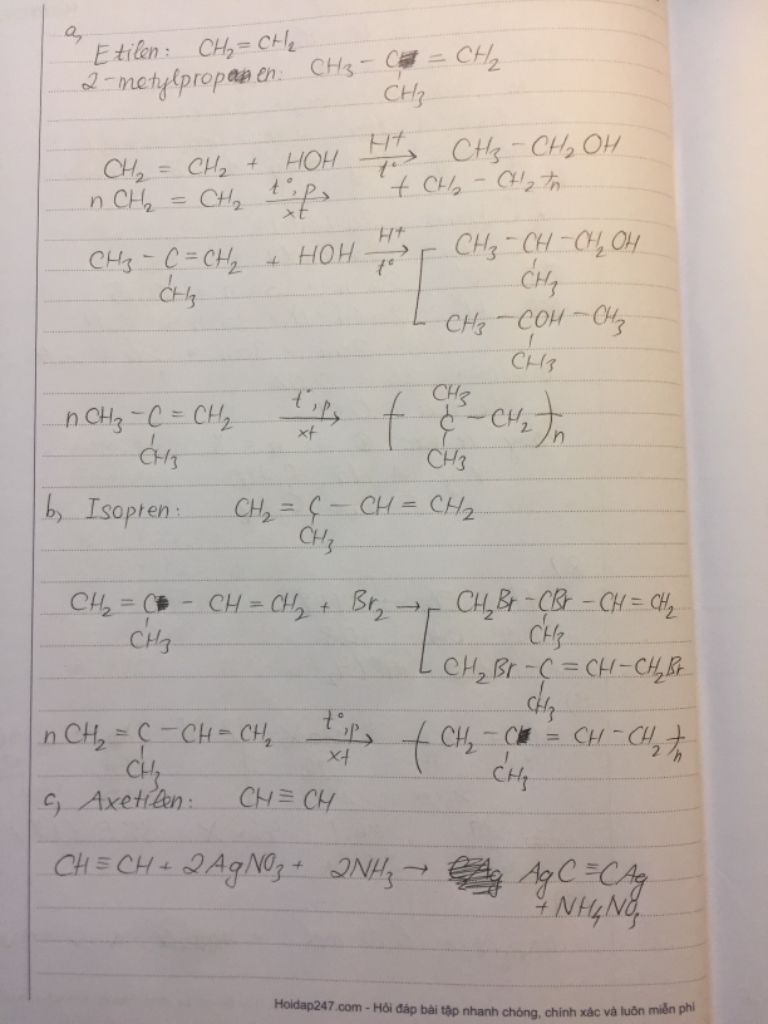 a,
Etilen: CH₂=CH₂
2-metylpropen: CH₃ - C = CH₂
CH₃
CH₂ = CH₂ + HOH H⁺ t° → CH₃ - CH₂OH
nCH₂ = CH₂ t°, p xt → +CH₂ - CH₂+n
CH₃ - C = CH₂ + HOH H⁺ t° → CH₃ - CH - CH₂OH
CH₃ CH₃
CH₃ - COH - CH₃
CH₃
CH₃
nCH₃ - C = CH₂ t°, p xt → ( C - CH₂ )n
CH₃ CH₃
b, Isopren: CH₂ = C - CH = CH₂
CH₃
CH₂ = C - CH = CH₂ + Br₂ → CH₂Br - CBr - CH = CH₂
CH₃ CH₃
CH₂Br - C = CH - CH₂Br
CH₃
nCH₂ = C - CH = CH₂ t°, p xt → ( CH₂ - C = CH - CH₂ )n
CH₃ CH₃
c, Axetilen: CH ≡ CH
CH ≡ CH + 2AgNO₃ + 2NH₃ → AgC ≡ CAg
+ NH₄NO₃
Hoidap247.com - Hỏi đáp bài tập nhanh chóng, chính xác và luôn miễn phí